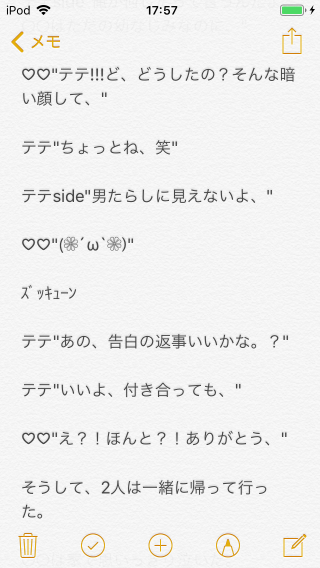 iPod 17:57
メモ
♡♡"テテ!!!ど、どうしたの？そんな暗
い顔して、"
テテ"ちょっとね、笑"
テテside"男たらしに見えないよ、"
♡♡"(❀´ω`❀)"
ｽﾞｯｷｭｰﾝ
テテ"あの、告白の返事いいかな。？"
テテ"いいよ、付き合っても、"
♡♡"え？！ほんと？！ありがとう、"
そうして、2人は一緒に帰って行っ
た。